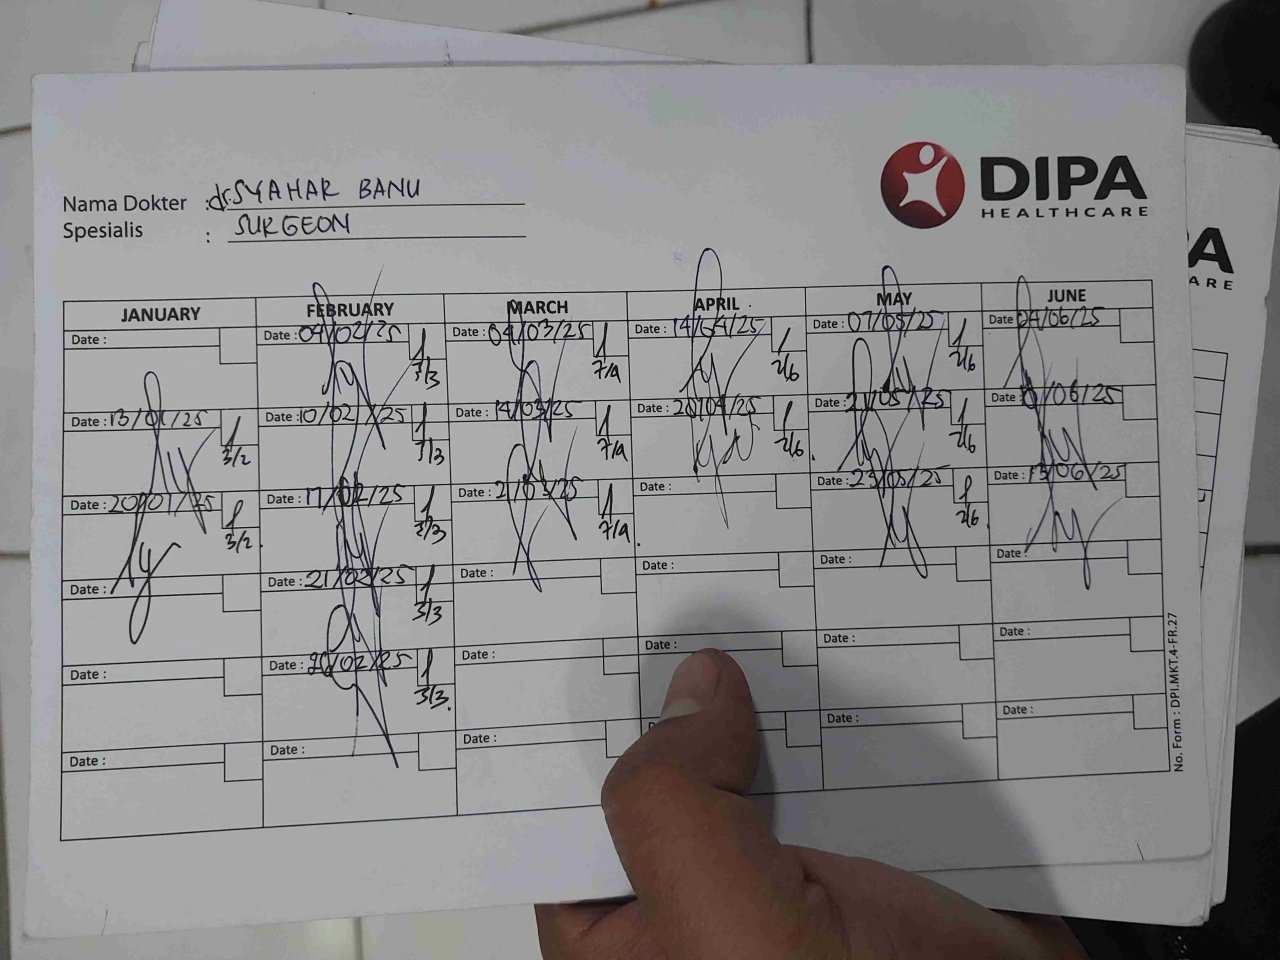 DIPA
HEALTHCARE
Nama Dokter : dr. SYAHAR BANU
Spesialis : SURGEON
JANUARY FEBRUARY MARCH APRIL MAY JUNE
Date : Date : 04/02/25 Date : 04/03/25 Date : 14/04/25 Date : 07/05/25 Date 04/06/25
3/3 7/4 2/6 2/6
Date : 13/01/25 Date : 10/02/25 Date : 14/03/25 Date : Date : Date : /06/25
3/2 3/3 7/4 2/6 2/6
Date : 20/01/25 Date : 17/02/25 Date : 21/03/25 Date : Date : 23/05/25 Date : 13/06/25
3/2 3/3 7/4 2/6
Date : Date : 21/02/25 Date : Date : Date : Date :
3/3
Date : Date : /02/25 Date : Date : Date : Date :
3/3
Date : Date : Date : Date : Date :
No. Form : DPI.MKT.4-FR.27
A
ARE